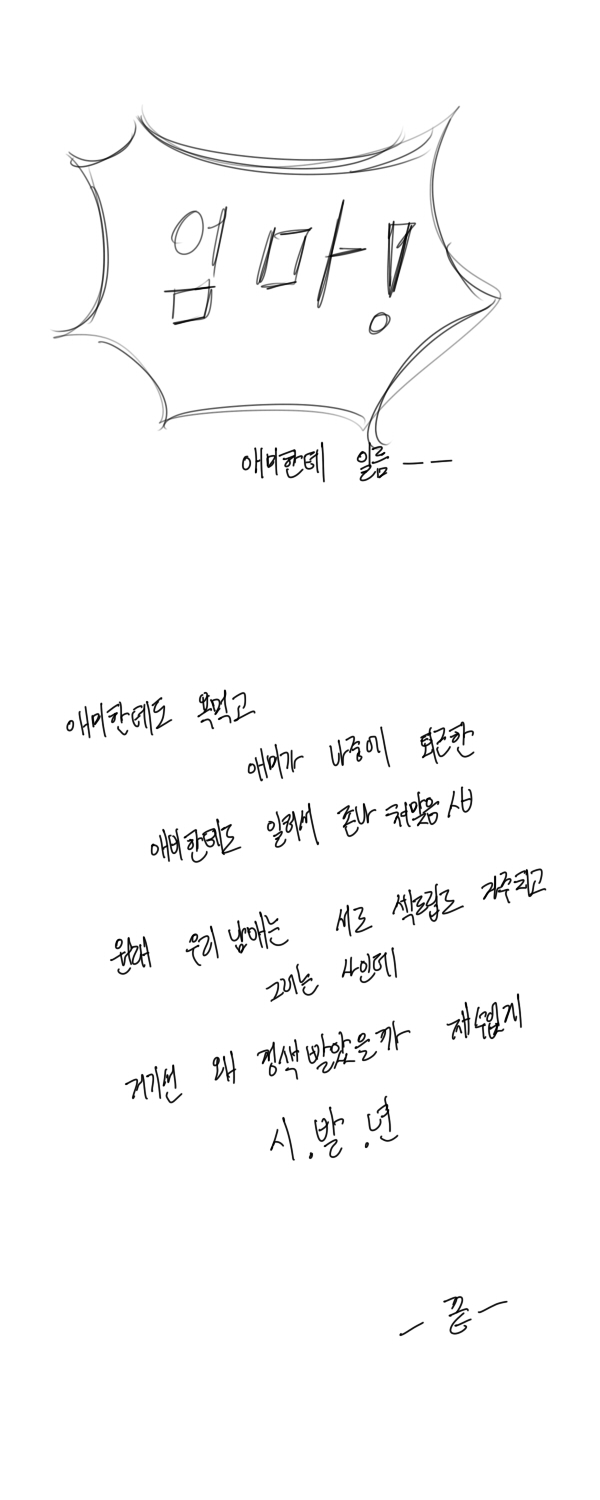 엄마!
애미한테 일름 ㅡㅡ
애미한테도 욕먹고
애미가 나중에 퇴근한
애비한테도 일러서 존나 쳐맞음 ㅅㅂ
원래 우리 남매는 서로 섹드립도 자주치고
그러는 사인데
거기선 왜 정색빨았을까 재수없게
시.발.년
ㅡ 끝 ㅡ